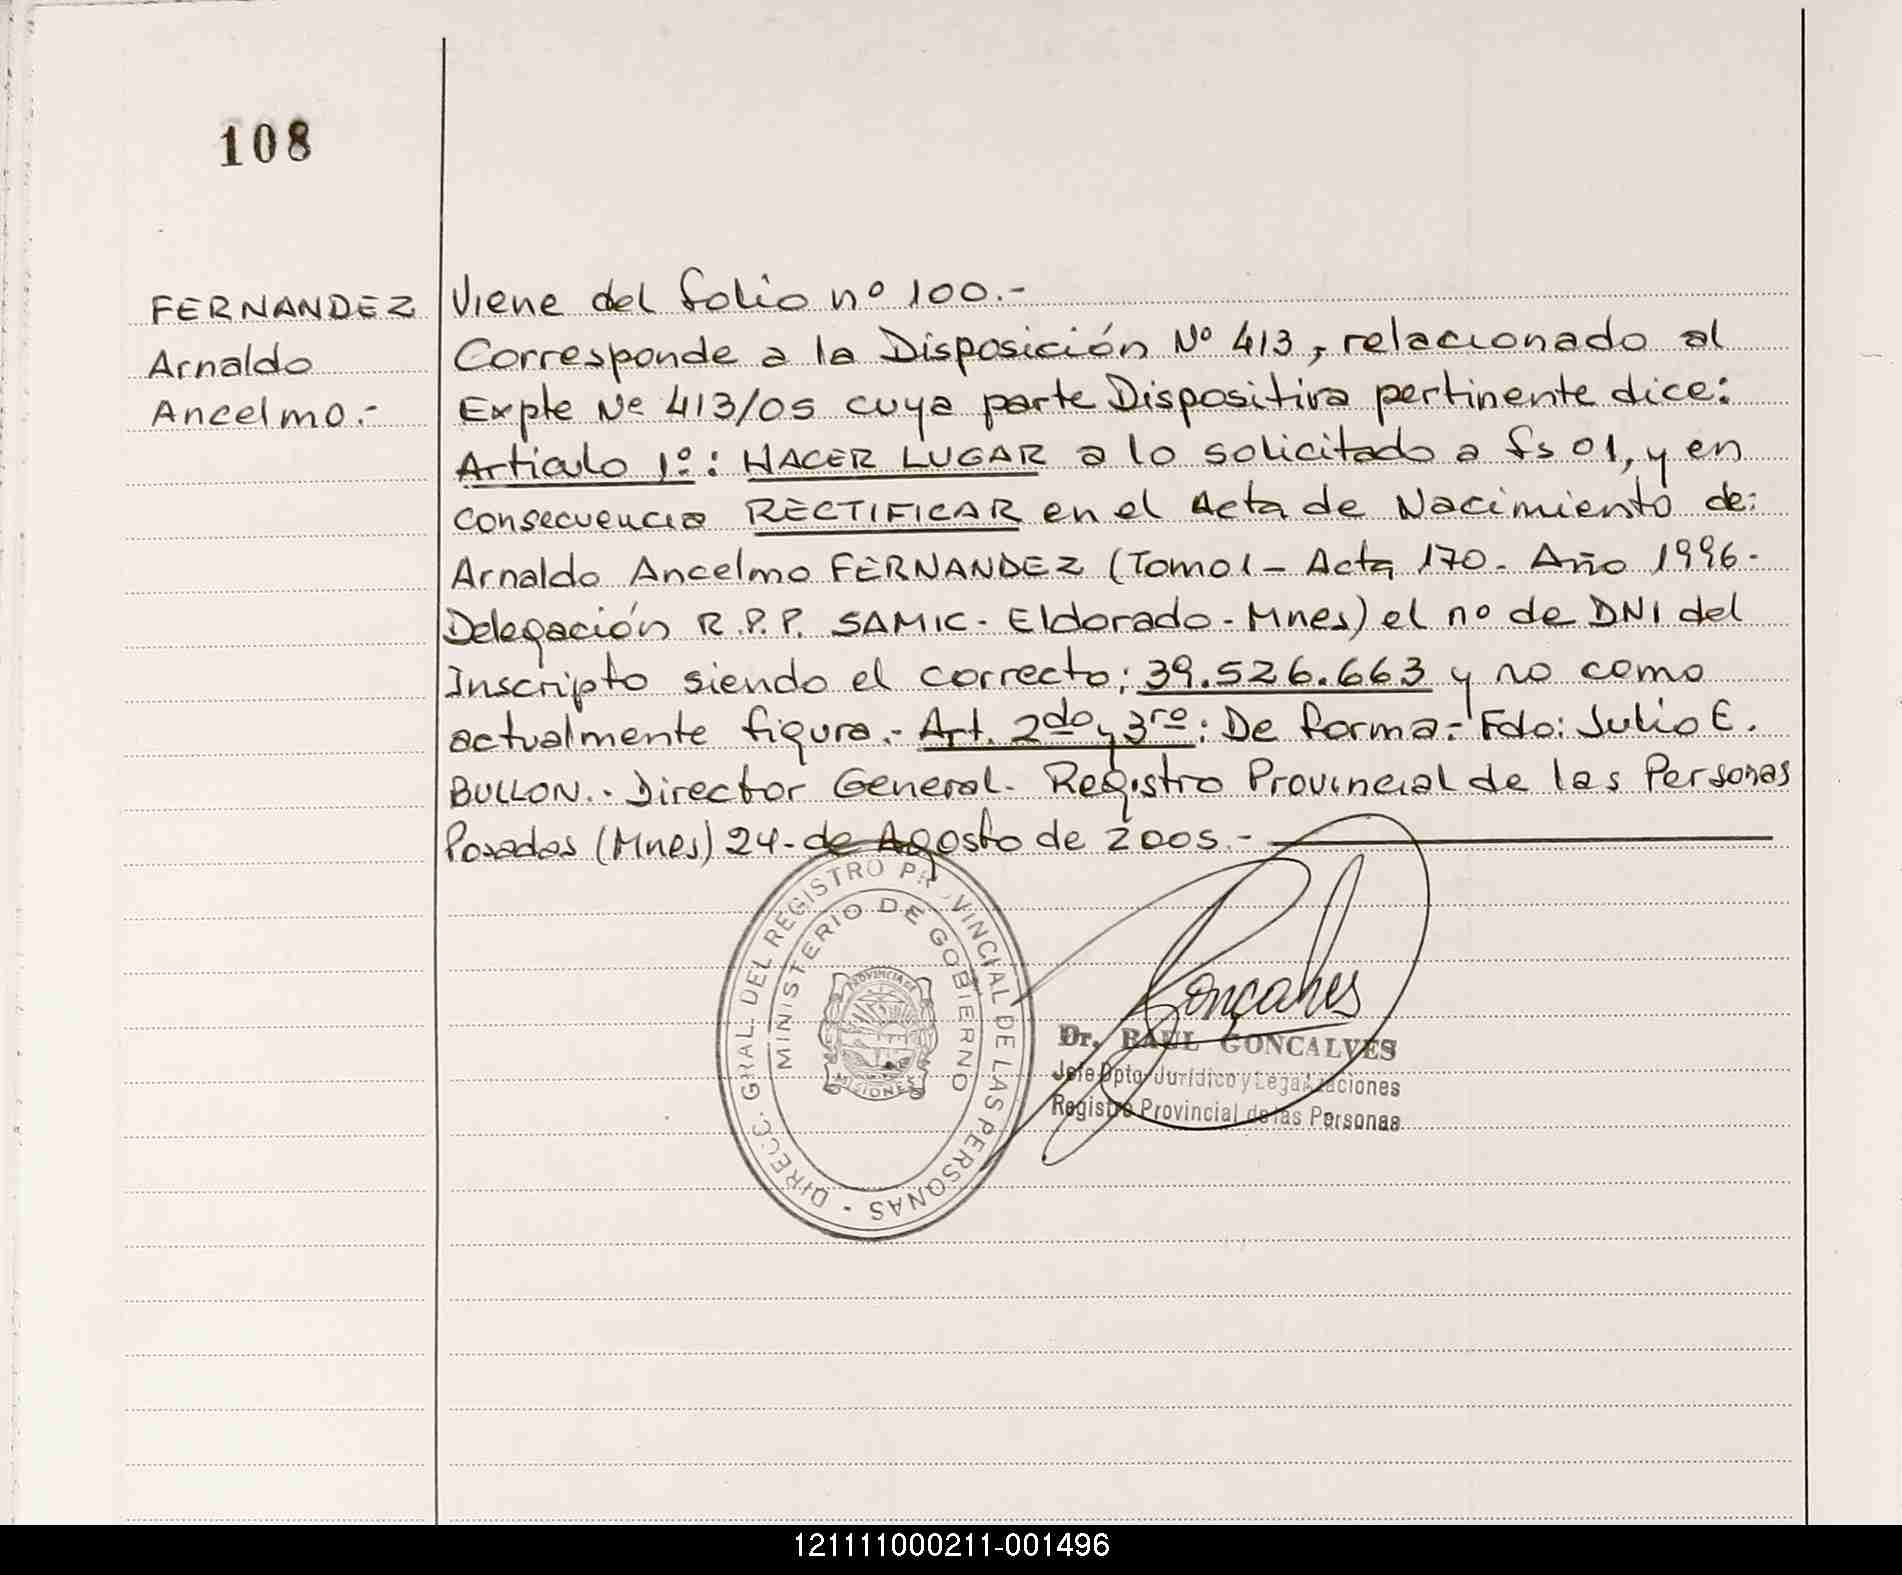 108
FERNANDEZ
Arnaldo
Ancelmo.-
Viene del folio nº 100.-
Corresponde a la Disposición Nº 413, relacionado al
Expte Nº 413/05 cuya parte Dispositiva pertinente dice:
Articulo 1º: HACER LUGAR a lo solicitado a fs 01, y en
consecuencia RECTIFICAR en el Acta de Nacimiento de:
Arnaldo Ancelmo FERNANDEZ (Tomo1- Acta 170. Año 1996-
Delegación R.P.P. SAMIC- Eldorado- Mnes) el nº de DNI del
Inscripto siendo el correcto; 39.526.663 y no como
actualmente figura.- Art. 2do y 3ro: De forma.- Fdo: Julio E.
BULLON.- Director General- Registro Provincial de las Personas
Posadas (Mnes) 24- de Agosto de 2005.-
DIRECC. GRAL. DEL REGISTRO PROVINCIAL DE LAS PERSONAS -
MINISTERIO DE GOBIERNO
PROVINCIA DE
MISIONES
Gonçalves
Dr. RAUL GONCALVES
Jefe Dpto. Jurídico y Legalizaciones
Registro Provincial de las Personas
121111000211-001496